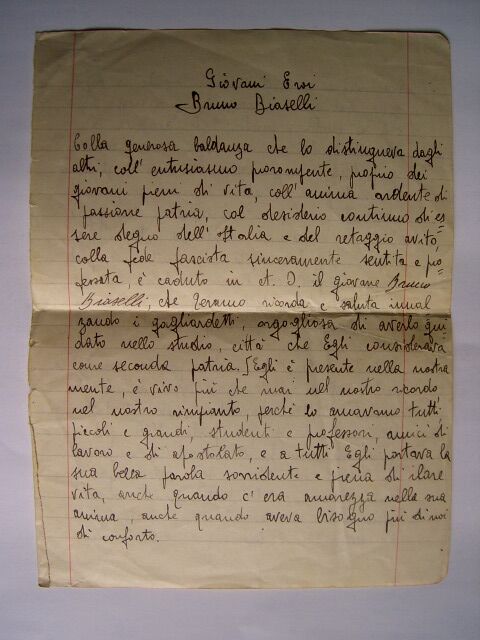 Giovani Eroi
Bruno Biaselli
Colla generosa baldanza che lo distingueva dagli
altri, coll' entusiasmo prorompente, proprio dei
giovani pieni di vita, coll' anima ardente di
passione patria, col desiderio continuo di es=
sere degno dell' Italia e del retaggio avito,
colla fede fascista sinceramente sentita e pro=
fessata, è caduto in A. O. il giovane Bruno
Biaselli, che Teramo ricorda e saluta innal
zando i gagliardetti, orgogliosa di averlo gui
dato nello studio, città che Egli considerava
come seconda patria. Egli è presente nella nostra
mente, è vivo più che mai nel nostro ricordo,
nel nostro rimpianto, perché lo amavamo tutti
piccoli e grandi, studenti e professori, amici di
lavoro e di apostolato, e a tutti Egli portava la
sua bella parola sorridente e piena di ilare
vita, anche quando c' era amarezza nella sua
anima, anche quando aveva bisogno più di noi
di conforto.